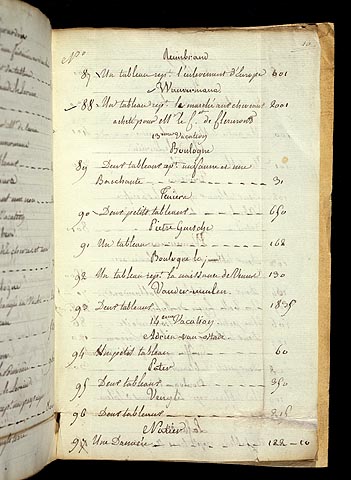 No
Reimbrand
87 Un tableau rept. l'enlevement d'Europe 601
Wauvermans
88 Un tableau rept. la marché aux chevaux 2001
acheté pour Mr. le
13eme Vacation
Boulogne
89 Deux tableaux rpt. un faune et une
Bacchante 31
Teniers
90 Deux petits tableaux 650
Pietre
91 Un tableau 162
Boulogne le j
92 Un tableau rept. la naissance de Venus 130
Vander meulen
93 Deux tableaux
14eme Vacation
Adrien van ostade
94 Un petit tableau 60
Pater
95 Deux tableaux 350
Vengle
96 Deux tableaux
Natier
97 Une Danaée 122 - 10